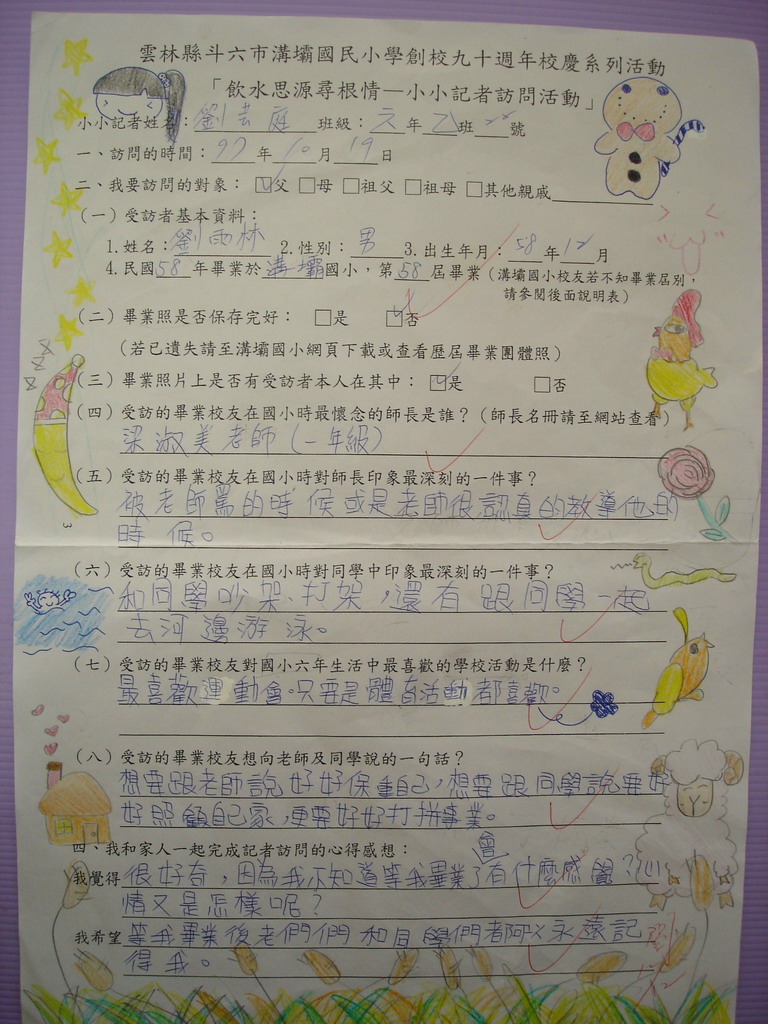 雲林縣斗六市溝壩國民小學創校九十週年校慶系列活動
「飲水思源尋根情—小小記者訪問活動」
小小記者姓名：劉芸庭 班級：六年乙班 號
一、訪問的時間：97年10月19日
二、我要訪問的對象：☑父 □母 □祖父 □祖母 □其他親戚
（一）受訪者基本資料：
1.姓名：劉雨林 2.性別：男 3.出生年月：58年12月
4.民國58年畢業於溝壩國小，第58屆畢業（溝壩國小校友若不知畢業屆別，
請參閱後面說明表）
（二）畢業照是否保存完好： □是 ☑否
（若已遺失請至溝壩國小網頁下載或查看歷屆畢業團體照）
（三）畢業照片上是否有受訪者本人在其中：☑是 □否
（四）受訪的畢業校友在國小時最懷念的師長是誰？（師長名冊請至網站查看）
梁淑美老師（一年級）
（五）受訪的畢業校友在國小時對師長印象最深刻的一件事？
被老師罵的時候或是老師很認真的教導他的
時候。
（六）受訪的畢業校友在國小時對同學中印象最深刻的一件事？
和同學吵架、打架，還有跟同學一起
去河邊游泳。
（七）受訪的畢業校友對國小六年生活中最喜歡的學校活動是什麼？
最喜歡運動會。只要是體育活動都喜歡。
（八）受訪的畢業校友想向老師及同學說的一句話？
想要跟老師說好好保重自己，想要跟同學說要好
好照顧自己家，更要好好打拼事業。
四、我和家人一起完成記者訪問的心得感想：
會
我覺得很好奇，因為我不知道等我畢業了有什麼感覺？心
情又是怎樣呢？
我希望等我畢業後老們們和同學們都可以永遠記
得我。